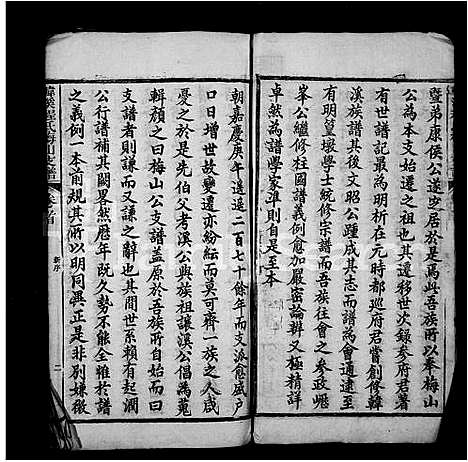 暨弟康侯公遂安居於是焉此吾族所以奉梅山
公為本支始遷之祖也其遷移世次錄參府君著
有世譜記最為明祈在元時都巡府君嘗創修韓
溪族譜其後文昭公踵成其志而譜為會通逮至
有明篁墩學士統修宗譜而吾族往會之參政
峯公繼修柱國譜義例愈加嚴密論辨又極精詳
卓然為譜學家準則自是至本
朝嘉慶庚午遙遙二百七十餘年而支派愈盛戶
口日增世故變遷亦紛紜而莫可齊一族之人咸
憂之於是先伯父考溪公與族祖讓溪公倡為蒐
輯顏之曰梅山公支譜蓋原於吾族所同而曰
支譜者則謙而又謙之辭也其間世系賴有起潤
公行譜補其闕畧然歷年既久勢不能全雖於譜
之義例一本前規其所以明同異正是非別嫌微
新序
二